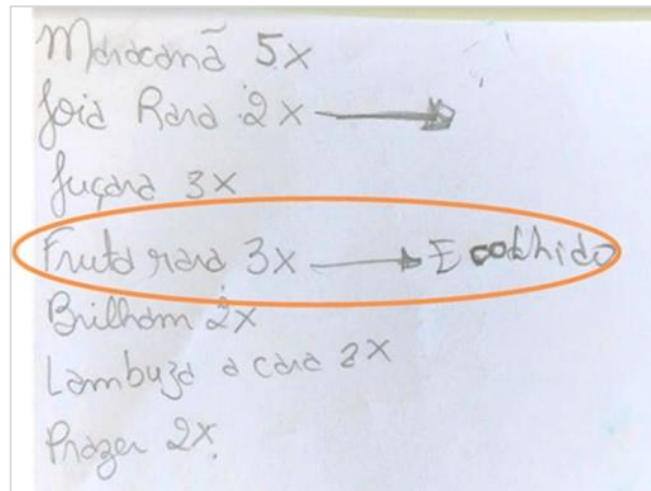 Maracanã 5x
Joia Rara 2x
Juçara 3x
Fruta rara 3x → Ecolhido
Brilham 2x
Lambuza a cara 2x
Prazer 2x